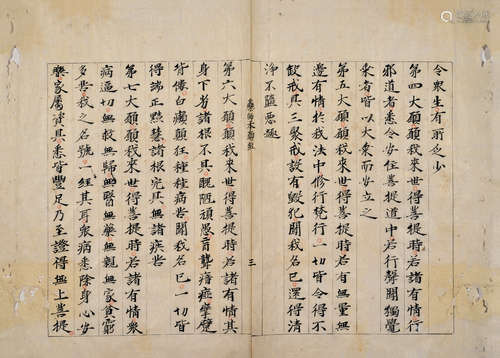 令衆生有所乏少
第四大願願我來世得菩提時若諸有情行
邪道者悉令安住菩提道中若行聲聞獨覺
乘者皆以大乘而安立之
第五大願願我來世得菩提時若有無量無
邊有情於我法中修行梵行一切皆令得不
缺戒具三聚戒設有毀犯聞我名已還得清
淨不墮惡趣
藥師本願經
三
第六大願願我來世得菩提時若諸有情其
身下劣諸根不具醜陋頑愚盲聾瘖瘂攣躄
背僂白癩癲狂種種病苦聞我名已一切皆
得端正黠慧諸根完具無諸疾苦
第七大願願我來世得菩提時若諸有情衆
病逼切無救無歸無醫無藥無親無家貧窮
多苦我之名號一經其耳衆病悉除身心安
樂家屬資具悉皆豐足乃至證得無上菩提